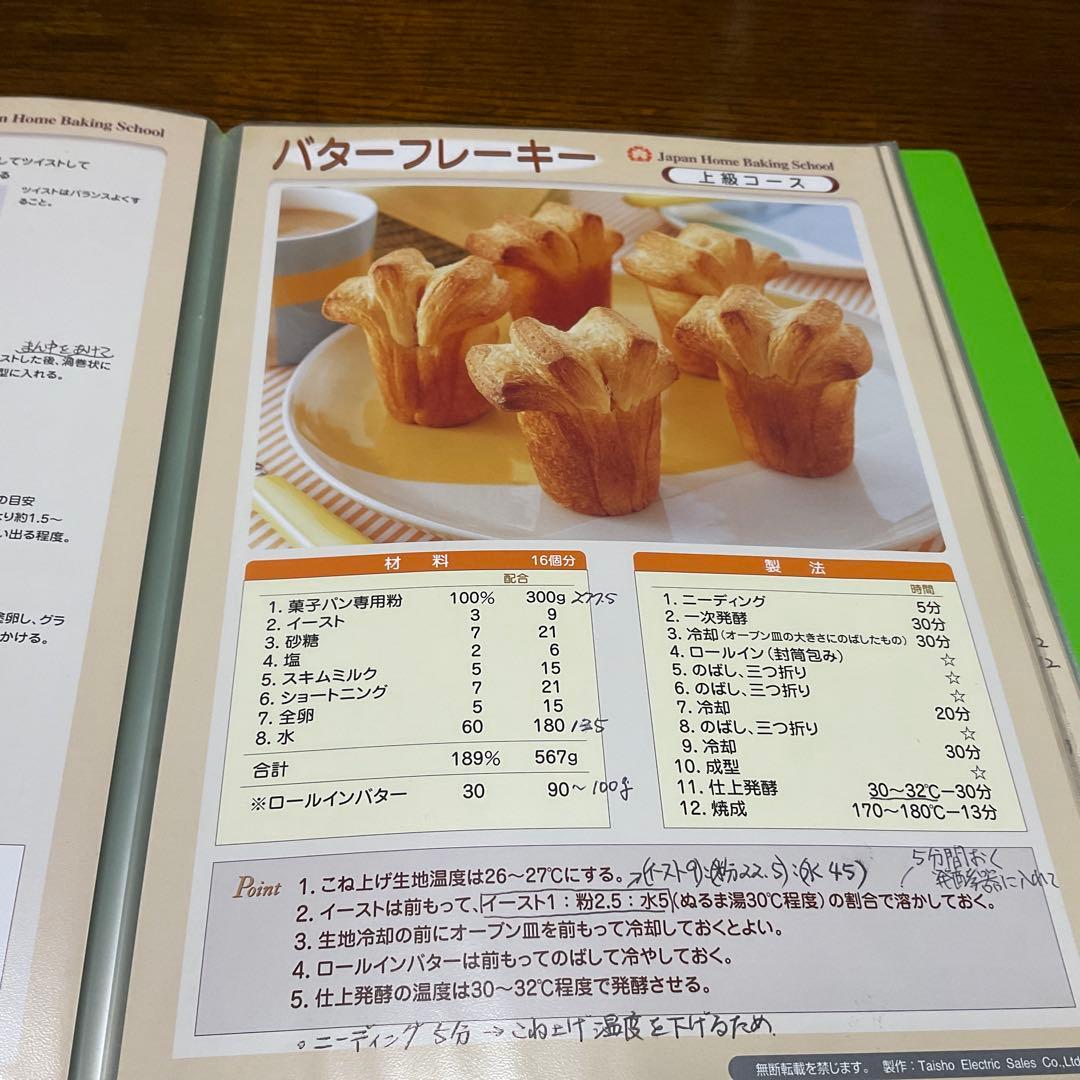 n Home Baking School
してツイストして
る
ツイストはバランスよくす
ること。
まん中をあけて
ストした後、渦巻状に
型に入れる。
の目安
より約1.5〜
い出る程度。
塗卵し、グラ
かける。
バターフレーキー
Japan Home Baking School
上級コース
材 料 16個分
配合
1. 菓子パン専用粉 100% 300g 277.5
2. イースト 3 9
3. 砂糖 7 21
4. 塩 2 6
5. スキムミルク 5 15
6. ショートニング 7 21
7. 全卵 5 15
8. 水 60 180 135
合計 189% 567g
※ロールインバター 30 90〜100g
製 法
時間
1. ニーディング 5分
2. 一次発酵 30分
3. 冷却(オーブン皿の大きさにのばしたもの) 30分
4. ロールイン(封筒包み) ☆
5. のばし、三つ折り ☆
6. のばし、三つ折り ☆
7. 冷却 20分
8. のばし、三つ折り ☆
9. 冷却 30分
10. 成型 ☆
11. 仕上発酵 30〜32℃−30分
12. 焼成 170〜180℃−13分
Point
1. こね上げ生地温度は26〜27℃にする。→(イースト9):(粉22.5):(水 45)
5分間おく
発酵容器に入れて
2. イーストは前もって、イースト1：粉2.5：水5(ぬるま湯30℃程度)の割合で溶かしておく。
3. 生地冷却の前にオーブン皿を前もって冷却しておくとよい。
4. ロールインバターは前もってのばして冷やしておく。
5. 仕上発酵の温度は30〜32℃程度で発酵させる。
○ニーディング 5分 → こね上げ温度を下げるため
無断転載を禁じます。 製作：Taisho Electric Sales Co.,Ltd